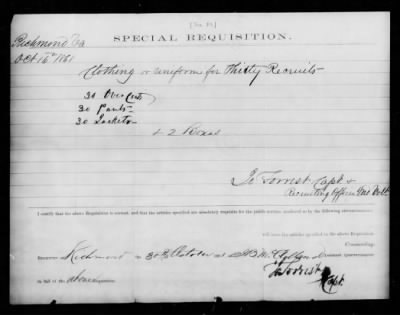 [No. 40.]
SPECIAL REQUISITION.
Richmond Va
Oct 16th 1861
Clothing or uniform for Thirty Recruits
30 Over Coats
30 Pants
30 Jackets
& 2 Boxes
Forrest Capt &
Recruiting Officer
I certify that the above Requisition is correct, and that the articles specified are absolutely requisite for the public service, rendered so by the following circumstances:
will issue the articles specified in the above Requisition.
Commanding.
Received Richmond 30th October of Quartermaster
in full of the above Requisition.
Forrest
Capt.